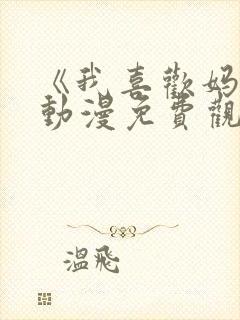 《我喜歡妈
動漫免費觀
溫飛